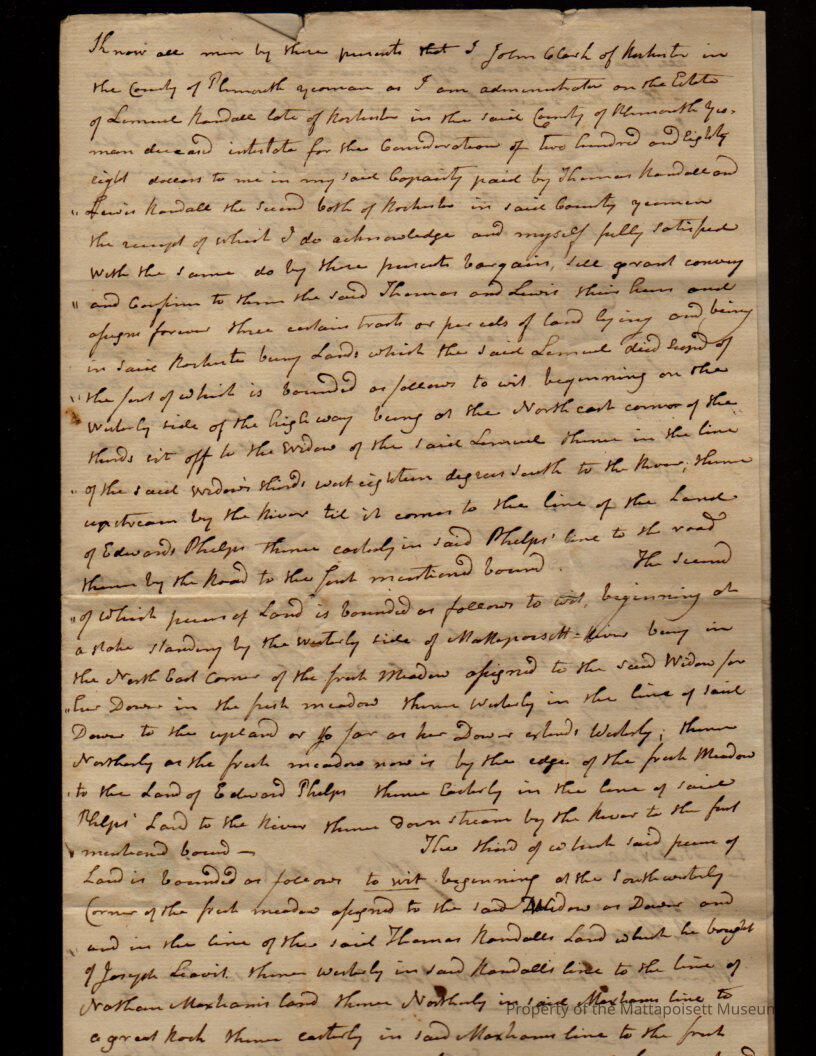 Know all men by these presents that I John Clark of Rochester in
the County of Plimouth yeoman as I am administrator on the Estate
of Lemuel Randall late of Rochester in the said County of Plimouth yeo-
man deceasd intestate for the Consideration of two hundred and Eighty
eight dollars to me in my said Capacity paid by Thomas Randall and
Lewis Randall the second both of Rochester in said County yeomen
the receipt of which I do acknowledge and myself fully satisfied
with the same do by these presents bargain, sell grant convey
and Confirm to them the said Thomas and Lewis their heirs and
assigns forever three certain tracts or parcels of land lying and being
in said Rochester being Lands which the said Lemuel died seized of
the first of which is bounded as follows to wit beginning on the
westerly side of the high way being at the North east corner of the
thirds sit off to the widow of the said Lemuel thence in the line
of the said widow's thirds west eighteen degrees south to the River; thence
upstream by the River til it comes to the line of the Land
of Edwards Phelps thence easterly in said Phelps' line to the road
thence by the Road to the first mentioned bound. The second
of which pieces of Land is bounded as follows to wit, beginning at
a stake standing by the westerly side of Mattapoisett-River being in
the North East Corner of the fresh meadow assigned to the said Widow for
her Dower in the fresh meadow thence westerly in the line of said
Dower to the upland or so far as her Dower extends Westerly; thence
Northerly as the fresh meadow now is by the edge of the fresh Meadow
to the Land of Edward Phelps thence Easterly in the line of said
Phelps' Land to the River thence down stream by the River to the first
mentioned bound — The third of which said pieces of
Land is bounded as follows to wit beginning at the Southwesterly
Corner of the fresh meadow assigned to the said Widow as Dower and
and in the line of the said Thomas Randalls Land which he bought
of Joseph Leavit. thence westerly in said Randalls line to the line of
Nathan Maxhams land thence Northerly in said Maxhams line to
a great Rock thence easterly in said Maxhams line to the fresh
Property of the Mattapoisett Museum